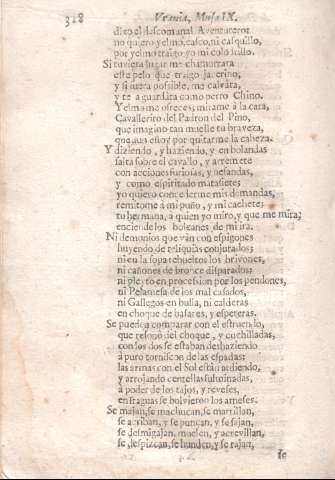 328 Vrania, Musa IX.
dixo el descomunal Aventurero:
no quiero yelmo, casco, ni casquillo,
por yelmo traigo yo mi colodrillo.
Si tuviera lugar me chamorrara
este pelo que traigo jacerino,
y si fuera possible, me calvara,
y te aguardara como perro Chino.
Yelmo me ofreces; mirame à la cara,
Cavallerito del Padron del Pino,
que imagino tan muelle tu braveza,
que aun estoy por quitarme la cabeza.
Y diziendo, y haziendo, y en bolandas
salta sobre el cavallo, y arremete
con acciones furiosas, y nefandas,
y como espiritado matasiete;
yo quiero concederme mis demandas,
remitome à mi puño, y mi cachete;
tu hermana, à quien yo miro, y que me mira;
enciende los bolcanes de mi ira.
Ni demonios que van con espigones
huyendo de reliquias conjurados;
ni en la sopa rebueltos los brivones,
ni cañones de bronce disparados;
ni pleyto en procession por los pendones,
ni Pelamesa de los mal casados,
ni Gallegos en bulla, ni calderas
en choque de basares, y espeteras.
Se pueden comparar con el estruendo,
que resonò del choque, y cuchilladas,
con los dos se estaban deshaziendo
à puro torniscon de las espadas:
las armas con el Sol están ardiendo,
y arrojando centellas fulminadas,
à poder de los tajos, y reveses,
en fraguas se bolvieron los arneses.
Se majan, se machucan, se martillan,
se acriban, y se punçan, y se sajan,
se desmigajan, muelen, y acrevillan,
se despizcan, se hunden, y se rajan,
se